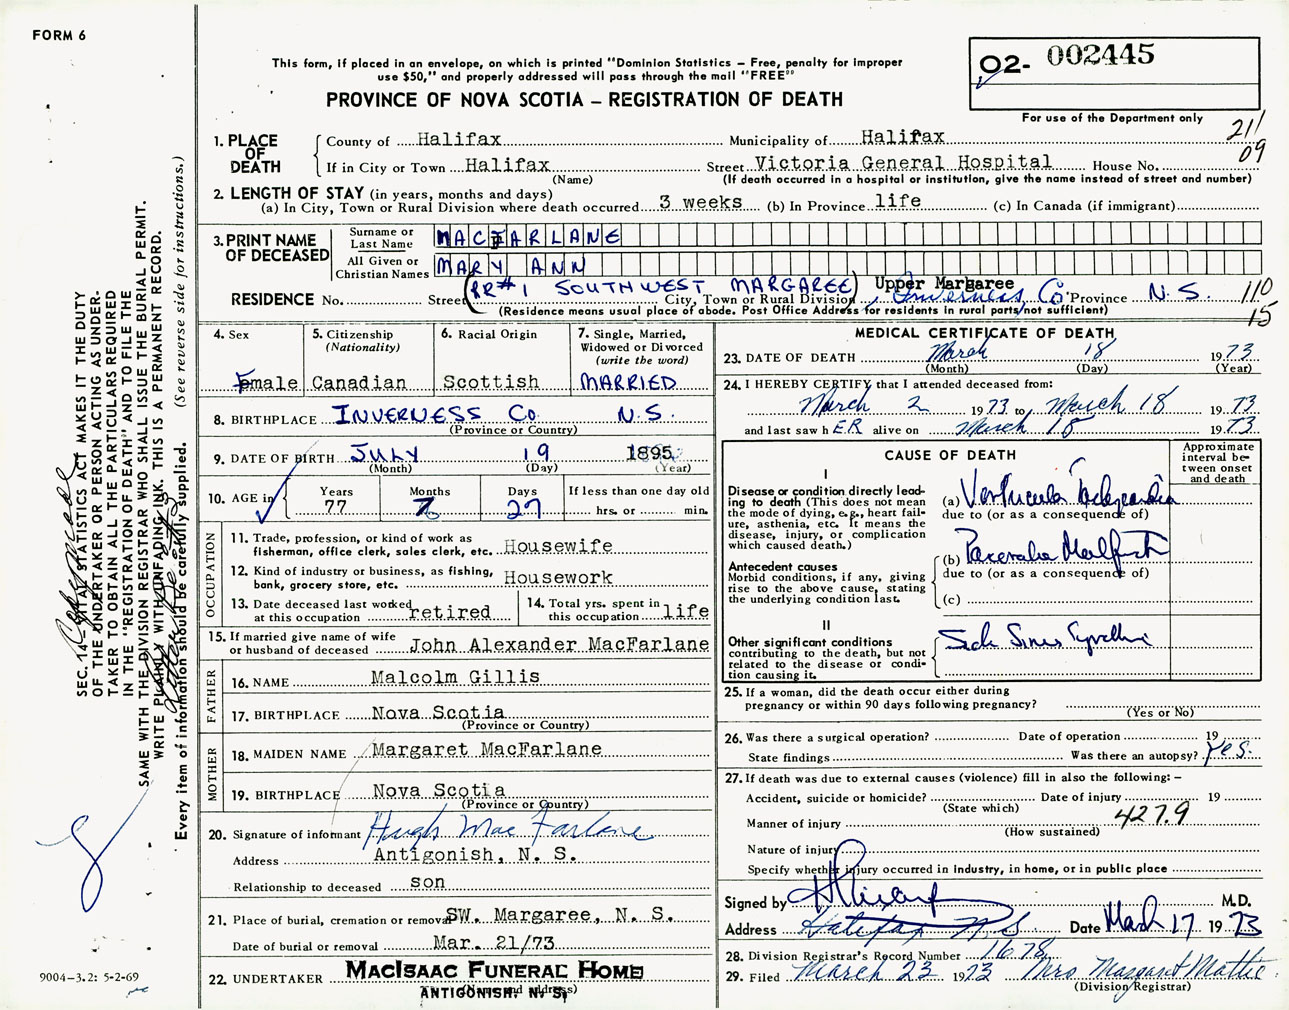 FORM 6
This form, if placed in an envelope, on which is printed "Dominion Statistics – Free, penalty for improper
use $50," and properly addressed will pass through the mail "FREE"
O2- 002445
PROVINCE OF NOVA SCOTIA – REGISTRATION OF DEATH
For use of the Department only
211
09
1. PLACE OF DEATH
County of Halifax Municipality of Halifax
If in City or Town Halifax Street Victoria General Hospital House No.
(Name) (If death occurred in a hospital or institution, give the name instead of street and number)
2. LENGTH OF STAY (in years, months and days)
(a) In City, Town or Rural Division where death occurred 3 weeks (b) In Province life (c) In Canada (if immigrant)
3. PRINT NAME OF DECEASED
Surname or Last Name MACFARLANE
All Given or Christian Names MARY ANN
(RR#1 SOUTHWEST MARGAREE) Upper Margaree
RESIDENCE No. Street City, Town or Rural Division, Inverness Co. Province N.S. 110
15
(Residence means usual place of abode. Post Office Address for residents in rural parts not sufficient)
4. Sex Female
5. Citizenship (Nationality) Canadian
6. Racial Origin Scottish
7. Single, Married, Widowed or Divorced (write the word) MARRIED
8. BIRTHPLACE INVERNESS Co. N.S.
(Province or Country)
9. DATE OF BIRTH JULY 19 1895
(Month) (Day) (Year)
10. AGE in Years 77 Months 7 Days 27 If less than one day old hrs. or min.
OCCUPATION
11. Trade, profession, or kind of work as fisherman, office clerk, sales clerk, etc. Housewife
12. Kind of industry or business, as fishing, bank, grocery store, etc. Housework
13. Date deceased last worked at this occupation retired
14. Total yrs. spent in this occupation life
15. If married give name of wife or husband of deceased John Alexander MacFarlane
FATHER
16. NAME Malcolm Gillis
17. BIRTHPLACE Nova Scotia
(Province or Country)
MOTHER
18. MAIDEN NAME Margaret MacFarlane
19. BIRTHPLACE Nova Scotia
(Province or Country)
20. Signature of informant Hugh MacFarlane
Address Antigonish, N. S.
Relationship to deceased son
21. Place of burial, cremation or removal SW. Margaree, N. S.
Date of burial or removal Mar. 21/73
22. UNDERTAKER MACISAAC FUNERAL HOME
(Name and address)
ANTIGONISH, N. S,
MEDICAL CERTIFICATE OF DEATH
23. DATE OF DEATH March 18 1973
(Month) (Day) (Year)
24. I HEREBY CERTIFY that I attended deceased from:
March 2 1973 to March 18 1973
and last saw hER alive on March 18 1973
CAUSE OF DEATH
Approximate interval between onset and death
I
Disease or condition directly leading to death (This does not mean the mode of dying, e.g., heart failure, asthenia, etc. It means the disease, injury, or complication which caused death.)
(a) Ventricular Tachycardia
due to (or as a consequence of)
Antecedent causes
Morbid conditions, if any, giving rise to the above cause, stating the underlying condition last.
(b) Pacemaker Malfunct
due to (or as a consequence of)
(c)
II
Other significant conditions contributing to the death, but not related to the disease or condition causing it.
Sick Sinus Syndrome
25. If a woman, did the death occur either during
pregnancy or within 90 days following pregnancy?
(Yes or No)
26. Was there a surgical operation? Date of operation 19
State findings Was there an autopsy? Yes.
27. If death was due to external causes (violence) fill in also the following: –
Accident, suicide or homicide? Date of injury 19
(State which)
Manner of injury 427.9
(How sustained)
Nature of injury
Specify whether injury occurred in Industry, in home, or in public place
Signed by M.D.
Address Halifax N S Date March 17 1973
28. Division Registrar's Record Number 1678
29. Filed March 23 1973 Mrs Margaret Mattie
(Division Registrar)
SEC. 14 – VITAL STATISTICS ACT MAKES IT THE DUTY
OF THE UNDERTAKER OR PERSON ACTING AS UNDER-
TAKER TO OBTAIN ALL THE PARTICULARS REQUIRED
IN THE "REGISTRATION OF DEATH" AND TO FILE THE
SAME WITH THE DIVISION REGISTRAR WHO SHALL ISSUE THE BURIAL PERMIT.
WRITE PLAINLY WITH UNFADING INK. THIS IS A PERMANENT RECORD.
Every item of information should be carefully supplied. (See reverse side for instructions.)
9004–3.2: 5-2-69